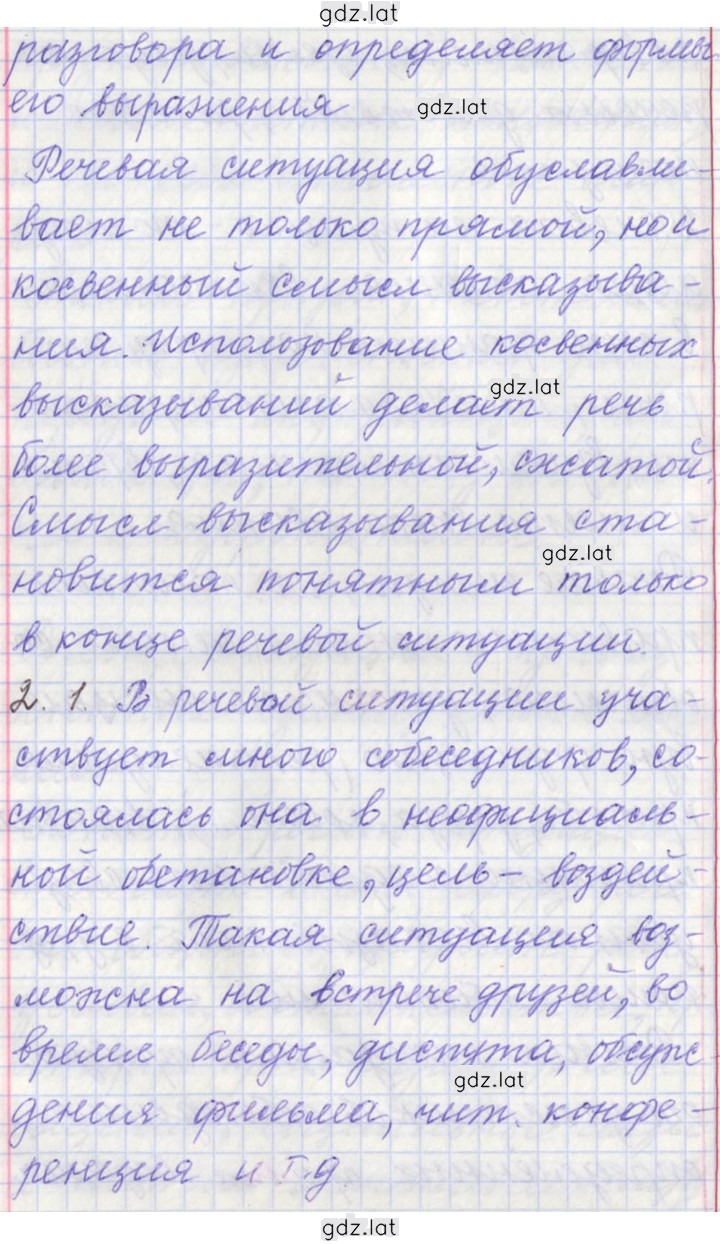 gdz.lat
разговора и определяет формы
его выражения
gdz.lat
Речевая ситуация обуславли-
вает не только прямой, но и
косвенный смысл высказыва-
ния. Использование косвенных
gdz.lat
высказываний делает речь
более выразительной, сжатой.
Смысл высказывания ста-
gdz.lat
новится понятным только
в конце речевой ситуации.
2. 1. В речевой ситуации уча-
ствует много собеседников, со-
стоялась она в неофициаль-
ной обстановке, цель – воздей-
ствие. Такая ситуация воз-
можна на встрече друзей, во
время беседы, диспута, обсуж-
gdz.lat
дения фильма, чит. конфе-
ренция и т.д
gdz.lat